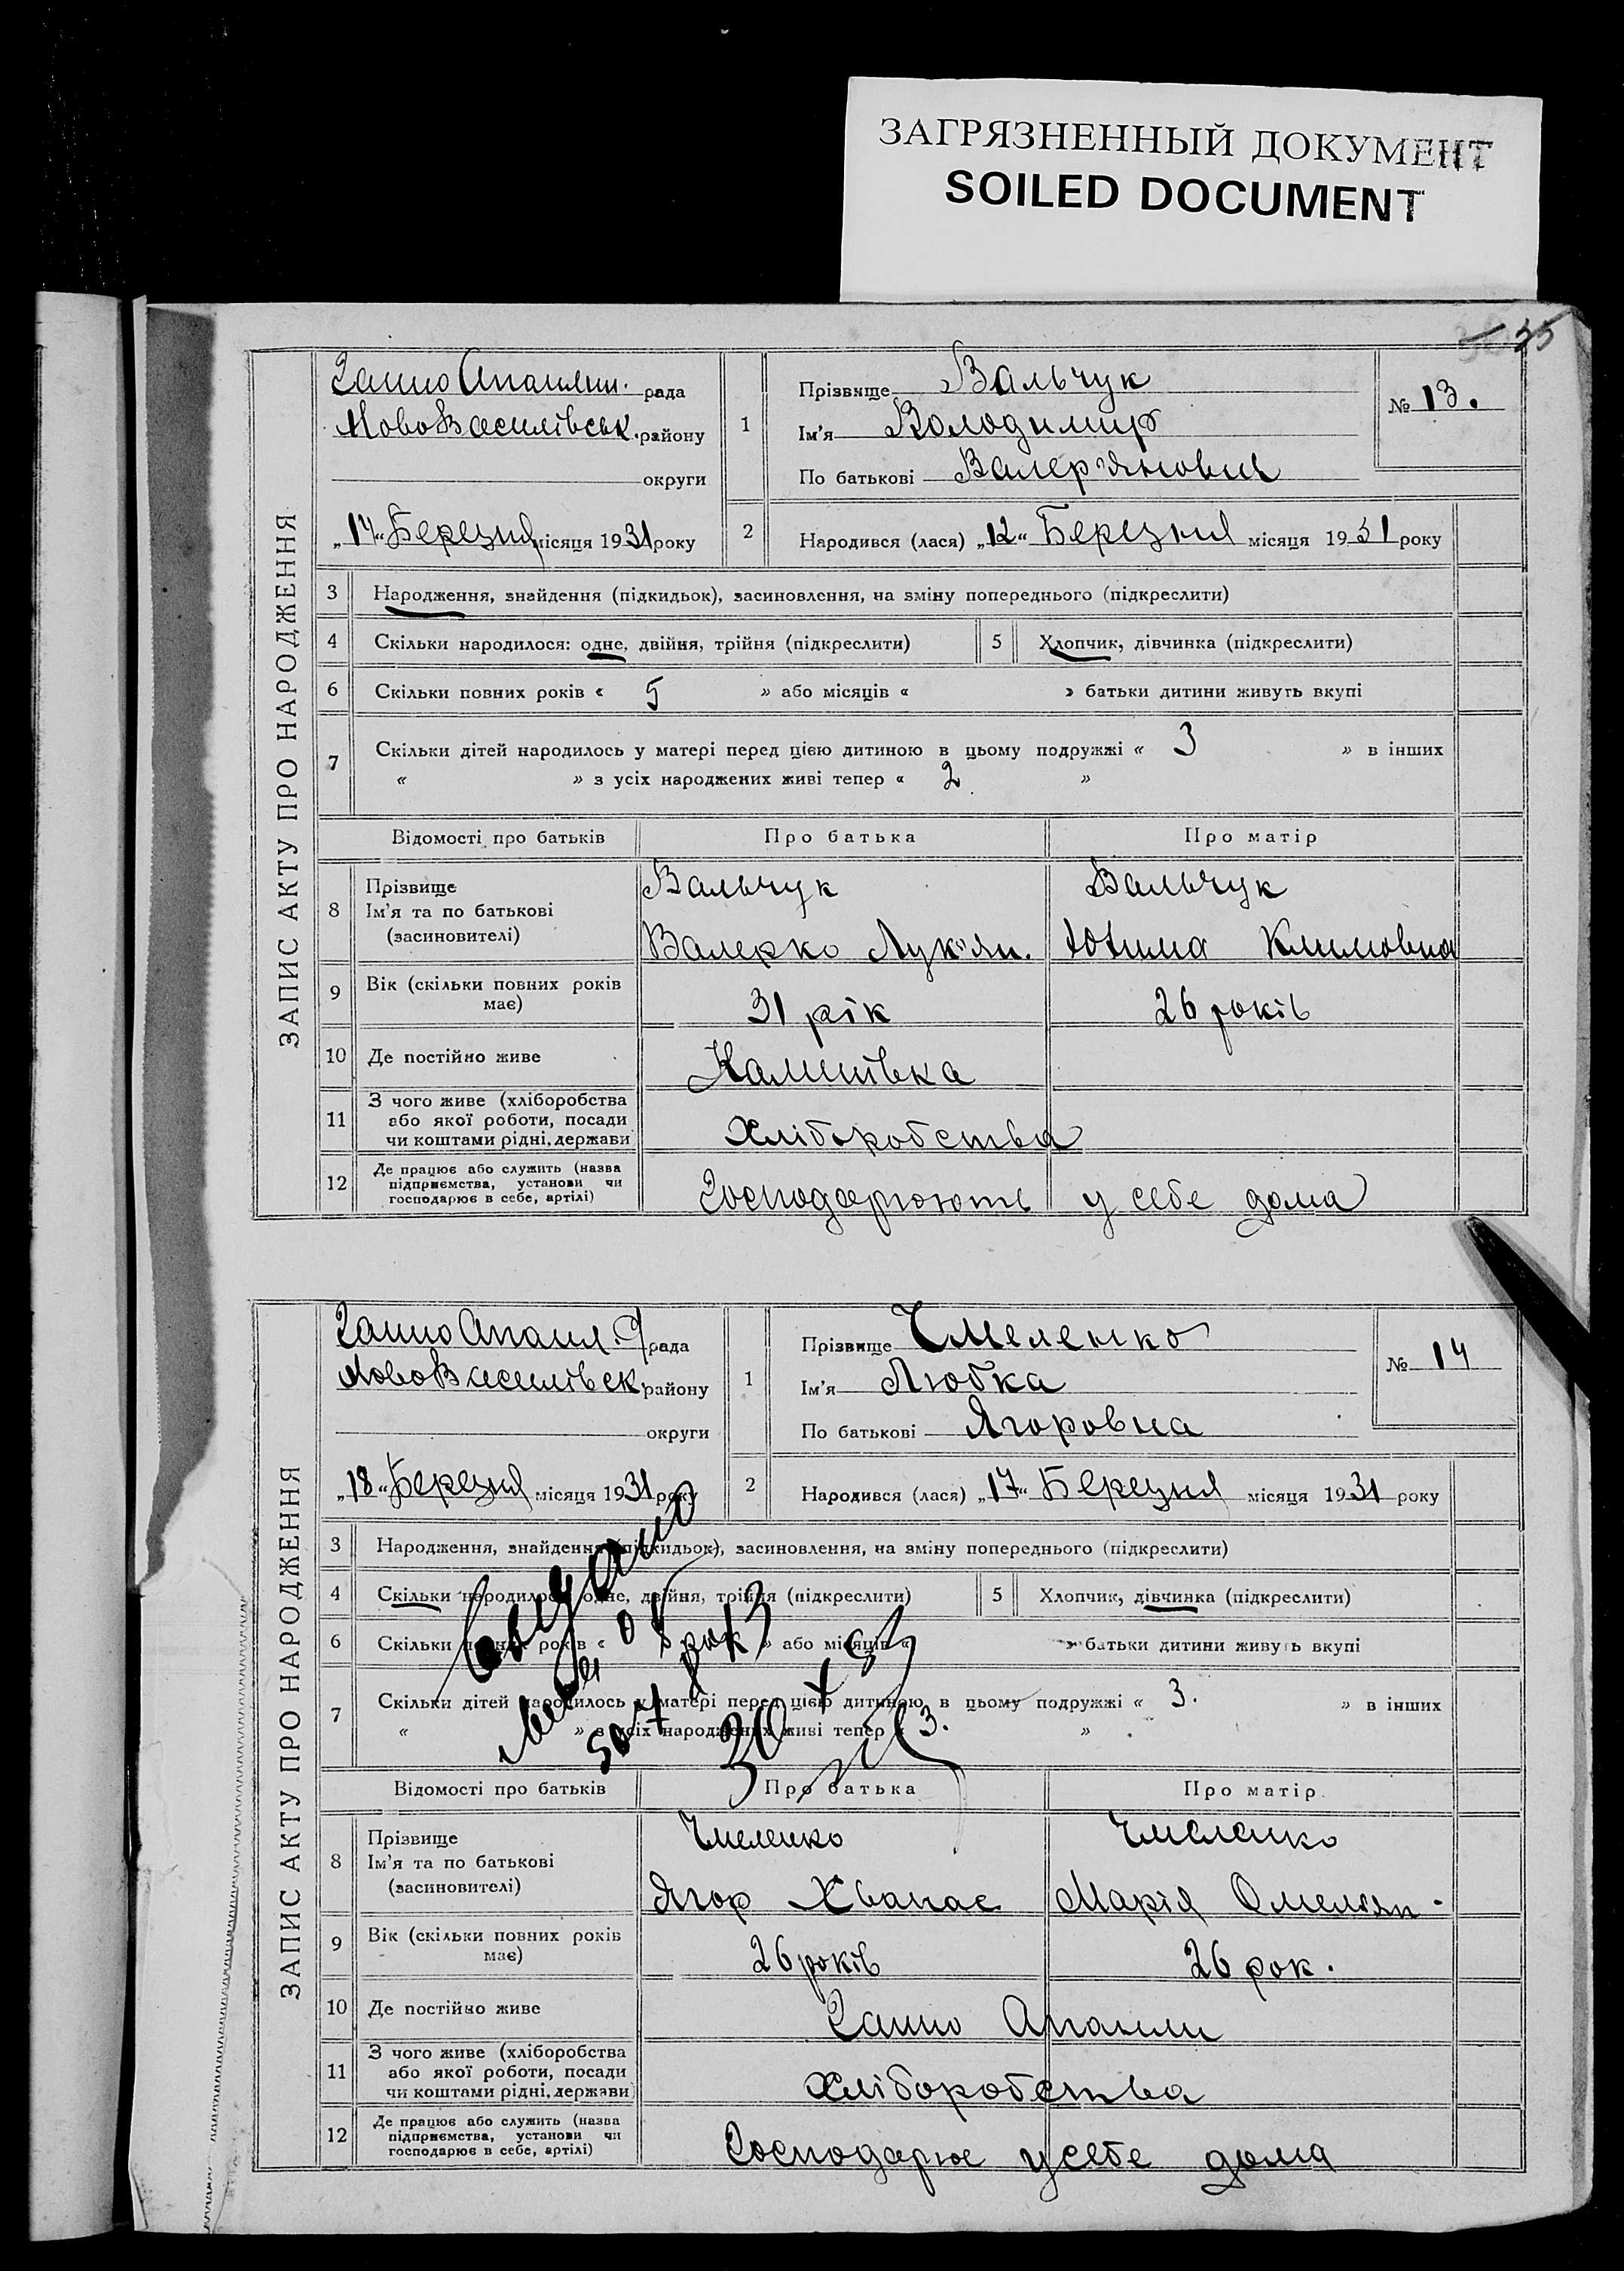 ЗАГРЯЗНЕННЫЙ ДОКУМЕНТ
SOILED DOCUMENT
35
ЗАПИС АКТУ ПРО НАРОДЖЕННЯ
рада
НовоВасилівськ. району
округи
„17“ Березня місяця 1931 року
1
Прізвище Вальчук
Ім'я Володимир
По батькові Валер'янович
№ 13.
2 Народився (лася) „12“ Березня місяця 1931 року
3 Народження, знайдення (підкидьок), засиновлення, на зміну попереднього (підкреслити)
4 Скільки народилося: одне, двійня, трійня (підкреслити) 5 Хлопчик, дівчинка (підкреслити)
6 Скільки повних років « 5 » або місяців « » батьки дитини живуть вкупі
7 Скільки дітей народилось у матері перед цією дитиною в цьому подружжі « 3 » в інших
« » з усіх народжених живі тепер « 2 »
Відомості про батьків Про батька Про матір
8 Прізвище Вальчук Вальчук
Ім'я та по батькові
(засиновителі) Валерко Лук'ян. Климовна
9 Вік (скільки повних років
має) 31 рік 26 років
10 Де постійно живе
11 З чого живе (хліборобства
або якої роботи, посади
чи коштами рідні, держави Хліборобства
12 Де працює або служить (назва
підприємства, установи чи
господарює в себе, артілі) Господарюють у себе дома
ЗАПИС АКТУ ПРО НАРОДЖЕННЯ
рада
НовоВасилівськ району
округи
„18“ Березня місяця 1931 року
1
Прізвище Чмеленко
Ім'я Любка
По батькові Ягоровна
№ 14
2 Народився (лася) „17“ Березня місяця 1931 року
3 Народження, знайдення (підкидьок), засиновлення, на зміну попереднього (підкреслити)
4 Скільки народилося: одне, двійня, трійня (підкреслити) 5 Хлопчик, дівчинка (підкреслити)
6 Скільки повних років « 8 рок » або місяців « » батьки дитини живуть вкупі
7 Скільки дітей народилось у матері перед цією дитиною в цьому подружжі « 3. » в інших
« » з усіх народжених живі тепер « 3. »
Відомості про батьків Про батька Про матір
8 Прізвище Чмеленко Чмеленко
Ім'я та по батькові
(засиновителі) Ягор Хванас Марія Омельян.
9 Вік (скільки повних років
має) 26 років 26 рок.
10 Де постійно живе
11 З чого живе (хліборобства
або якої роботи, посади
чи коштами рідні, держави Хліборобства
12 Де працює або служить (назва
підприємства, установи чи
господарює в себе, артілі) Господарює у себе дома